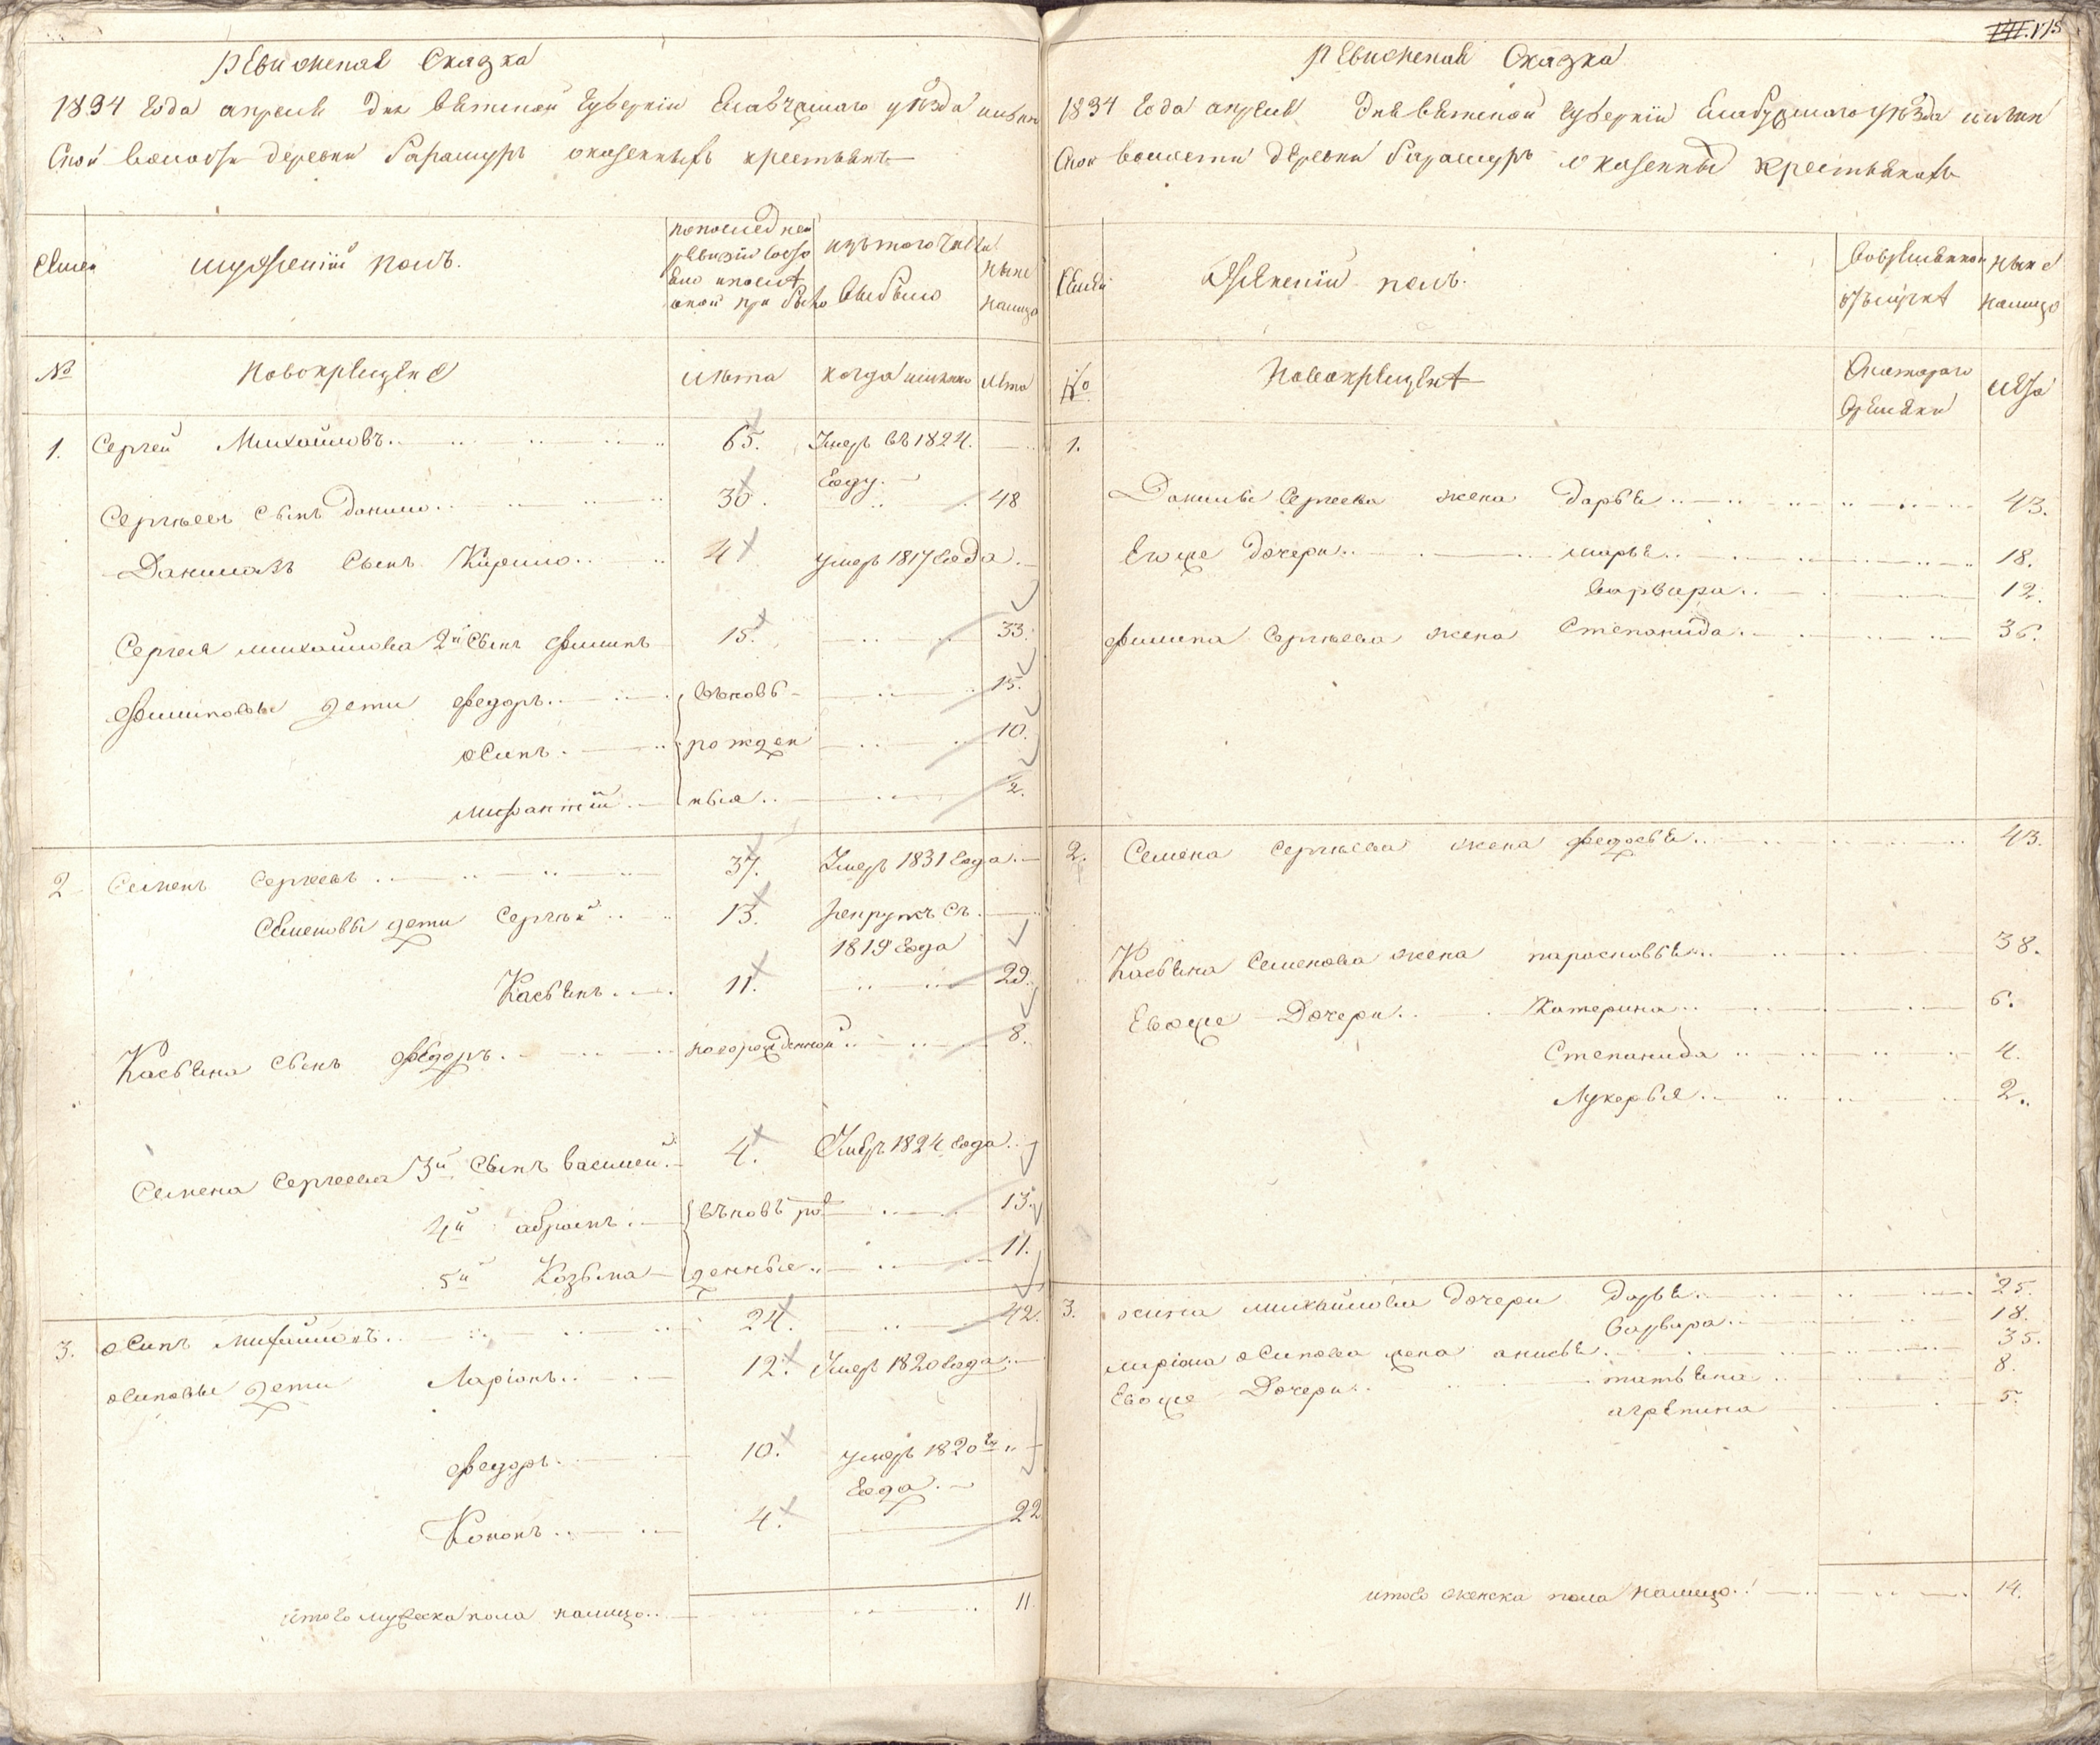 Ревизская Сказка
1834 года апреля дня вятской губернии Елабужскаго уезда
Ской волости деревни Барамуръ о казенныхъ крестьянъ
Семьи
мужескiй полъ.
по последней
ревизiи состо
яло и после
оной при было
изъ того числа
выбыло
ныне
налицо
№
новокрещене
лета
когда именно
лета
1. Сергей Михайловъ 65. Умеръ въ 1824.
году.
Сергеевъ сынъ Данило 30. 48
Даниловъ сынъ Кирило 4 умеръ 1817 года
Сергея михайлова 2й сынъ филипъ 15. 33.
филиповы дети федоръ вьновь 15.
осипъ рожден 10.
ныя 2.
2 Семенъ Сергеевъ 37. Умеръ 1831 года
Семеновы дети Сергей 13. рекрутъ съ
1819 года
Касьянъ 11. 29.
Касьяна сынъ федоръ новорожденной 8.
Семена Сергеева 3й сынъ василей 4. Умеръ 1824 года
4й абрамъ вьновь рож 13.
5й Козьма денные 11.
3. осипъ михайловъ 24. 42.
осиповы дети Ларiонъ 12. Умеръ 1820 года
федоръ 10. умеръ 1820го
года
Кононъ 4. 22
итого мужеска пола налицо 11
175
Ревизская Сказка
1834 года апреля дня вятской губернии Елабужскаго уезда
Ской волости деревни Барамуръ о казенны крестьянахъ
Семьи
женскiй полъ.
во временной
отлучке
ныне
налицо
№
Новокрещене
С котораго
времени
лета
1.
Данилы Сергеева жена дарья 43.
Евоже дочери марья 18.
варвара 12.
филипа Сергеева жена Степанида 36.
2. Семена Сергеева жена федосья 43.
Касьяна Семенова жена парасковья 38.
Евоже дочери Катерина 6.
Степанида 4.
Лукерья 2.
3. осипа михайлова дочери дарья 25.
варвара 18.
ларiона осипова жена анисья 35.
Евоже дочери татьяна 8.
агрепина 5.
итого женска пола налицо 14.